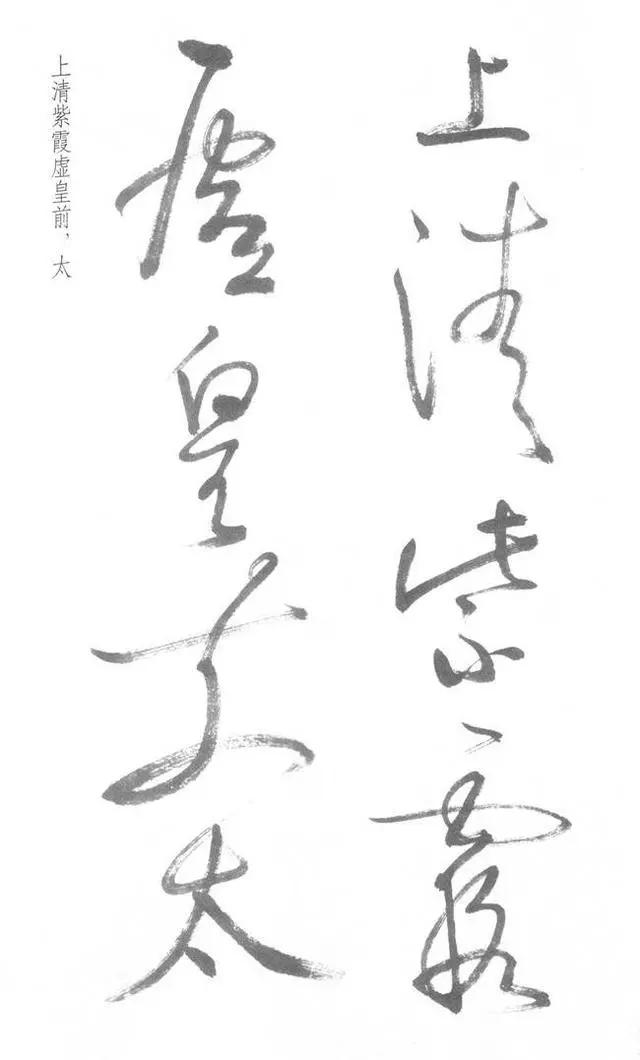 上清紫霞
虛皇前太
上清紫霞虚皇前，太